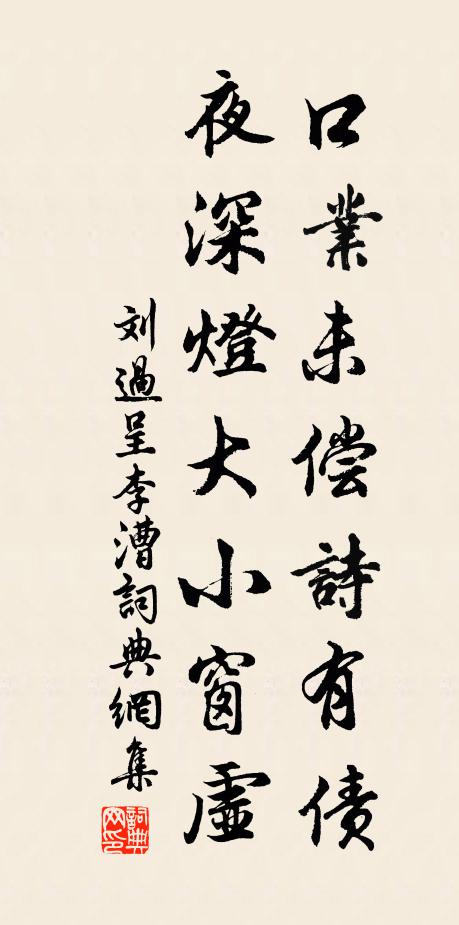 口業未偿詩有债
夜深燈大小窗虛
刘過呈李漕詞典網集
詞典网印